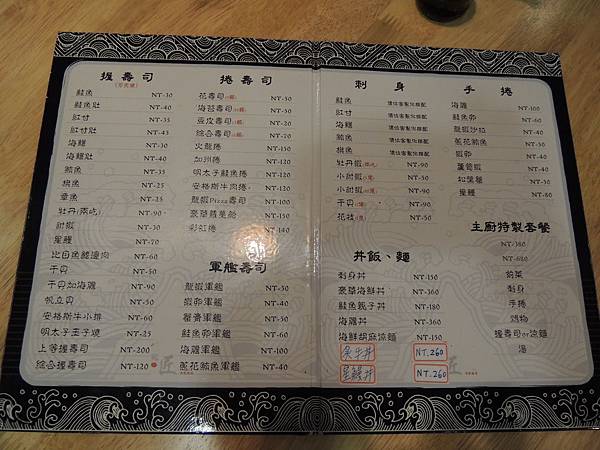 握壽司
鮭魚 NT-30
鮭魚肚 NT-40
紅甘 NT-35
紅甘肚 NT-45
海鱺 NT-30
海鱺肚 NT-40
鮪魚 NT-35
旗魚 NT-25
章魚 NT-25
牡丹(兩吃) NT-90
甜蝦 NT-30
星鰻 NT-70
比目魚鰭邊肉 NT-60
干貝 NT-50
干貝加海膽 NT-90
帆立貝 NT-50
安格斯牛小排 NT-60
明太子玉子燒 NT-25
上等握壽司 NT-200
綜合握壽司 NT-120
捲壽司
花壽司 NT-50
海苔壽司 NT-50
豆皮壽司 NT-20
綜合壽司 NT-70
火龍捲 NT-120
加州捲 NT-120
明太子鮭魚捲 NT-120
安格斯牛肉捲 NT-120
龍蝦Pizza壽司 NT-100
豪華蔬菜船 NT-150
彩虹捲 NT-140
軍艦壽司
龍蝦軍艦 NT-30
蝦卵軍艦 NT-40
蟹膏軍艦 NT-50
鮭魚卵軍艦 NT-60
海膽軍艦 NT-100
蔥花鮪魚軍艦 NT-40
刺身
鮭魚
紅甘
海鱺
鮪魚
旗魚
牡丹蝦(兩吃) NT-90
小甜蝦 NT-50
小甜蝦 NT-90
干貝 NT-90
花枝 NT-50
丼飯、麵
刺身丼 NT-150
豪華海鮮丼 NT-360
鮭魚親子丼 NT-180
海膽丼 NT-360
海鮮胡麻涼麵 NT-150
炙牛丼 NT.260
星鰻丼 NT.260
手捲
海膽 NT-100
鮭魚卵 NT-60
龍蝦沙拉 NT-40
蔥花鮪魚 NT-50
蝦卵 NT-40
蘆筍蝦 NT-40
加葉蟹 NT-50
星鰻 NT-80
主廚特製套餐
NT-380
NT-680
前菜
刺身
手捲
烤物
握壽司or涼麵
湯